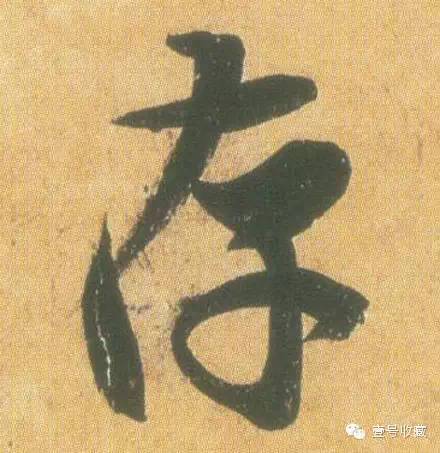 存
壹号收藏